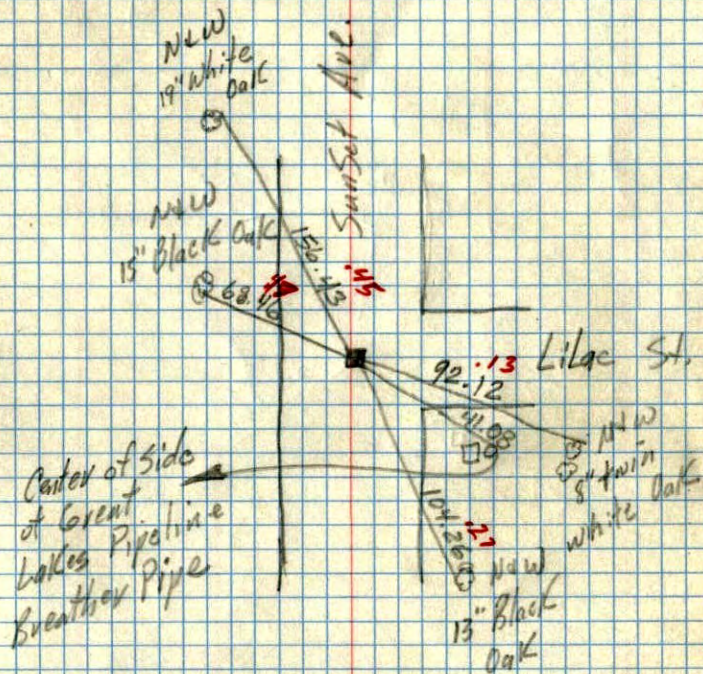 N&W
19" White
Oak
Sunset Ave.
N&W
15" Black Oak
156.43
.45
68.46
92.12
.13
Lilac St.
41.08
N&W
8" twin
White Oak
Center of Side
of Great
Lakes Pipeline
Breather Pipe
104.26
.27
N&W
13" Black
Oak